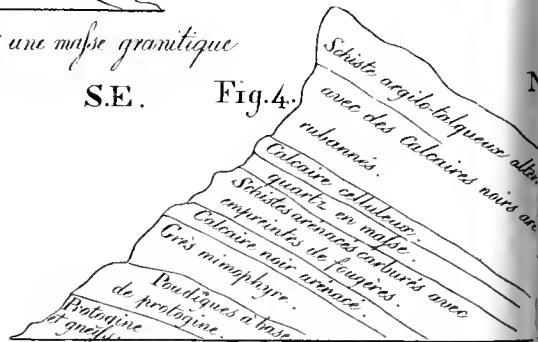 une maſse granitique
S.E.
Fig.4.
N
Schiste argilo-talqueux
avec des Calcaires noirs
rubannés.
Calcaire celluleux.
quartz en maſse.
Schistes arénacés carburés avec
empreintes de fougères.
Calcaire noir arénacé.
Grès mimophyre.
Poudingues à base
de protogine.
Protogine
et gneiſs.